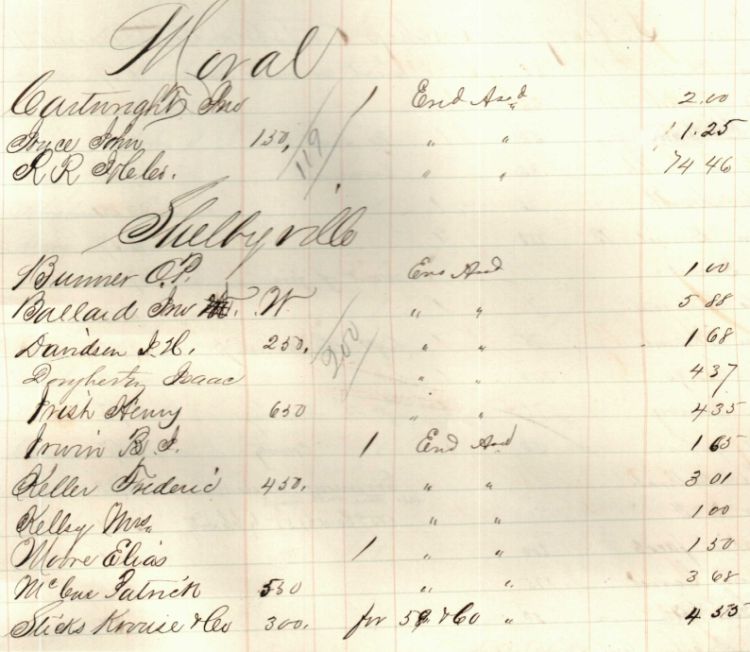 Moral
Cartwright Jno 1 End Assd 2.00
Price John 150, /119/ " " 11.25
R R " " 74 46
Shelbyville
Bunner O.P. Ens Assd 1 00
Ballard Jno W. " " 5 88
Davidson J. H. 250, /200/ " " 1 68
Dougherty Isaac " " 4 37
Irish Henry 650 " " 4 35
Irwin B. J. 1 End Assd 1 65
Keller Frederic 450, " " 3 01
Kelby Mrs " " 1 00
Moore Elias 1 " " 1 50
McCue Patrick 550 " " 3 68
Sticks Krouse & Co 300, for & Co " 4 55